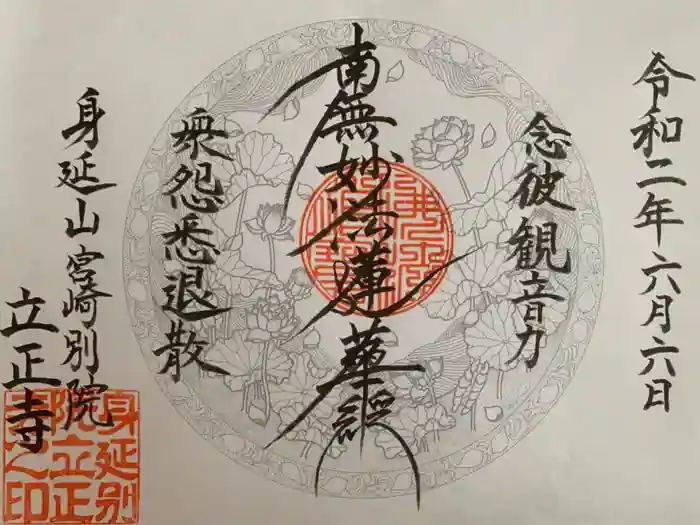 令和二年六月六日
念彼観音力
南無妙法蓮華経
衆怨悉退散
身延山宮崎別院
立正寺
身延別
院立正
寺之印